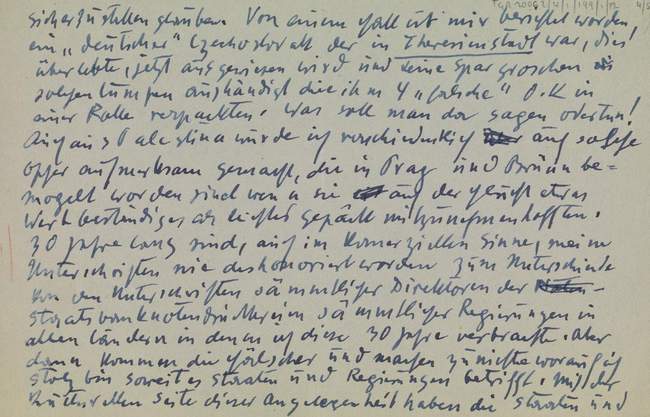 sicherzustellen glauben. Von einem Fall ist mir berichtet worden
ein "deutscher" Czechoslovak der in Theresienstadt war, dies
überlebte, jetzt ausgewiesen wird und seine Spargroschen
solchen Lumpen aushändigt die ihm 4 "falsche" O.K in
einer Rolle verpackten. Was soll man da sagen oder tun!
Auch aus Palestina wurde ich verschiedentlich auf solche
Opfer aufmerksam gemacht, die in Prag und Brünn be=
mogelt worden sind wenn sie auf der Flucht etwas
Wertbeständiges als leichtes Gepäck mitzunehmen hofften.
30 Jahre lang sind, auch im komerziellen Sinne, meine
Unterschriften nie deshonoriert worden zum Unterschiede
von den Unterschriften sämmtlicher Direktoren der
Staatsbanknotendruckereien sämmtlicher Regierungen in
allen Ländern in denen ich diese 30 Jahre verbrachte. Aber
dann kommen die Fälscher und machen zunichte worauf ich
stolz bin soweit es Staaten und Regierungen betrifft. Mit der
kulturellen Seite dieser Angelegenheit haben die Staaten und